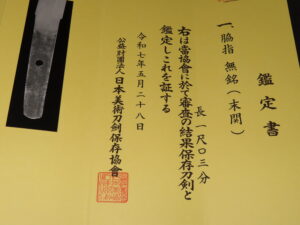 鑑定書
一、脇指 無銘（末関）
長一尺〇三分
右は當協會に於て審査の結果保存刀剣と
鑑定しこれを証する
令和七年五月二十八日
公益財団法人日本美術刀剣保存協會